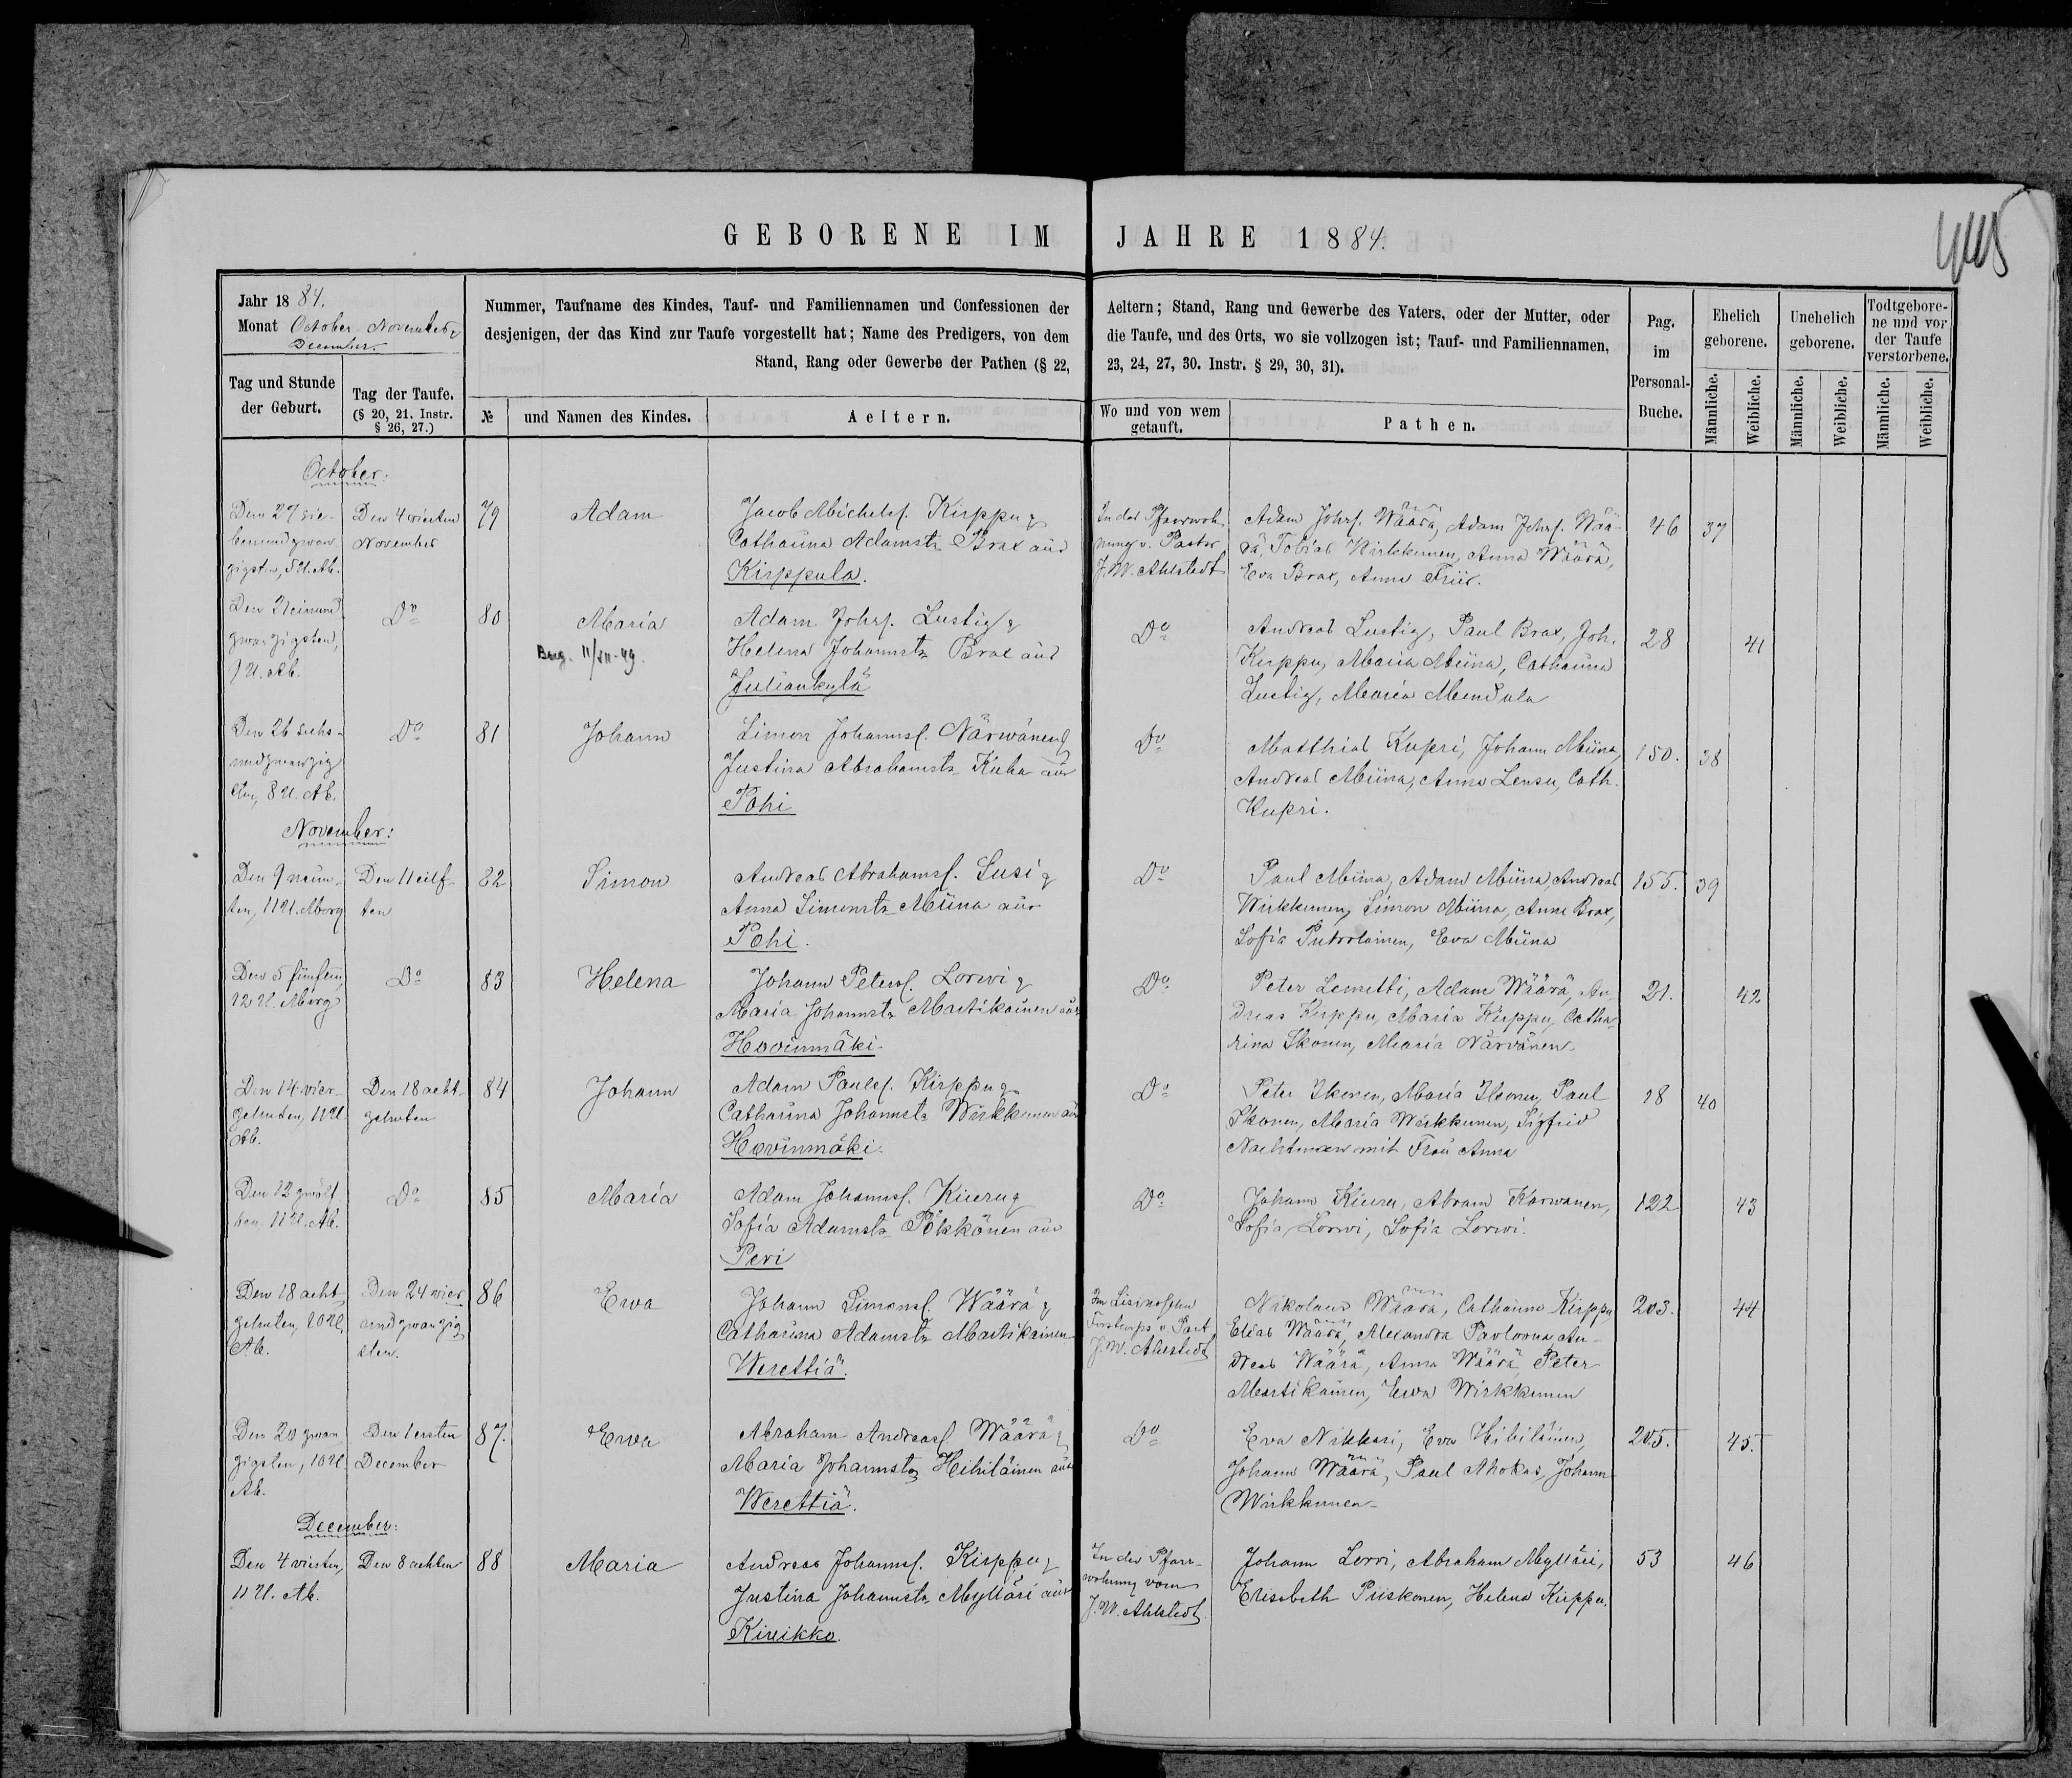 GEBORENE IM JAHRE 1884.
Jahr 1884.
Monat October November
December.
Nummer, Taufname des Kindes, Tauf- und Familiennamen und Confessionen der
desjenigen, der das Kind zur Taufe vorgestellt hat; Name des Predigers, von dem
Stand, Rang oder Gewerbe der Pathen (§ 22,
Aeltern; Stand, Rang und Gewerbe des Vaters, oder der Mutter, oder
die Taufe, und des Orts, wo sie vollzogen ist; Tauf- und Familiennamen,
23, 24, 27, 30. Instr. § 29, 30, 31).
Pag.
im
Personal-
Buche.
Ehelich
geborene.
Unehelich
geborene.
Todtgebore-
ne und vor
der Taufe
verstorbene.
Tag und Stunde
der Geburt.
Tag der Taufe.
(§ 20, 21. Instr.
§ 26, 27.)
№
und Namen des Kindes.
Aeltern.
Wo und von wem
getauft.
Pathen.
Männliche.
Weibliche.
Männliche.
Weibliche.
Männliche.
Weibliche.
October:
Den 27 sie-
benundzwan
zigsten, 5 U. Ab.
Den 4 vierten
November
79
Adam
Jacob Michelss. Kirppu &
Catharina Adamstr. Brax aus
Kirppula.
In der Pfarrwoh
nung v. Pastor
J. W. Ahlstedt
Adam Johss. Wäärä, Adam Johss. Wää-
rä, Tobias Wirkkunen, Anna Wäärä,
Eva Brax, Anna
46
37
Den
zwanzigsten,
9 U. Ab.
Do
80
Maria
11/XII-49.
Adam Johss. Lustig &
Helena Johannstr. Brax aus
Juliankylä
Do
Andreas Lustig, Paul Brax, Joh.
Kirppu, Maria Miina, Catharina
Lustig, Maria
28
41
Den 26 sechs-
undzwanzig
sten, 8 U. Ab.
Do
81
Johann
Simon Johannss. Närwänen &
Justina Abrahamstr. Kuha aus
Pohi
Do
Matthias Kupri, Johann Miina,
Andreas Miina, Anna Lensu, Cath.
Kupri.
150.
38
November:
Den 9 neun-
ten, 11 U. Morg
Den 11 eilf-
ten
82
Simon
Andreas Abrahamss. Susi &
Anna Simonstr. Miina aus
Pohi.
Do
Paul Miina, Adam Miina, Andreas
Wirkkunen, Simon Miina, Anna Brax,
Sofia Putrolainen, Eva Miina
155.
39
Den 5 fünften,
12 U. Morg
Do
83
Helena
Johann Peterss. Lorwi &
Maria Johannstr. Martikainen aus
Hovinmäki
Do
Peter Lemetti, Adam Wäärä, An-
dreas Kirppu, Maria Kirppu, Catha-
rina Ikonen, Maria Närvänen.
21.
42
Den 14 vier-
zehnten, 11 U.
Ab.
Den 18 acht-
zehnten
84
Johann
Adam Paulss. Kirppu &
Catharina Johannstr. Wirkkunen aus
Hovinmäki.
Do
Peter Ikonen, Maria Ikonen, Paul
Ikonen, Maria Wirkkunen, Sigfrid
Nachtman mit Frau Anna
18
40
Den 12 zwölf
ten, 11 U. Ab.
Do
85
Maria
Adam Johannss. Kiuru &
Sofia Adamstr. Pökkönen aus
Peri
Do
Johann Kiuru, Abram Karwanen,
Sofia Lorwi, Sofia Lorwi.
122
43
Den 18 acht
zehnten, 10 U.
Ab.
Den 24 vier
undzwanzig
sten.
86
Ewa
Johann Simonss. Wäärä &
Catharina Adamstr. Martikainen
Werettiä.
Im Lisinoschen
Forstcorps v. Past
J. W. Ahlstedt
Nikolaus Wäärä, Catharina Kirppu
Elias Wäärä, Alexandra Pavlovna An-
dreas Wäärä, Anna Wäärä, Peter
Martikainen, Ewa Wirkkunen
203.
44
Den 20 zwan
zigsten, 10 U.
Ab.
Den 1 ersten
December
87.
Ewa
Abraham Andreass. Wäärä &
Maria Johannstr. Hihiläinen aus
Werettiä.
Do
Eva Nikkari, Eva Hihiläinen,
Johann Wäärä, Paul Ahokas, Johann
Wirkkunen
205.
45.
December:
Den 4 vierten,
11 U. Ab.
Den 8 achten
88
Maria
Andreas Johannss. Kirppu &
Justina Johannstr. Mylläri aus
Kireikko.
In der Pfarr-
wohnung vom
J. W. Ahlstedt.
Johann Lorvi, Abraham Mylläri,
Elisabeth Piiskonen, Helena Kirppu.
53
46